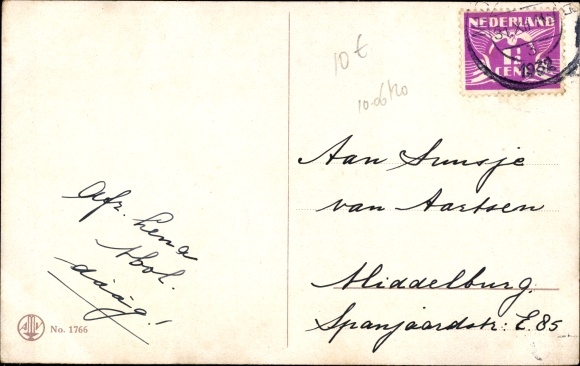 NEDERLAND
1½
CENT
1932
10 €
Aan Suusje
van Aartsen
Middelburg.
Spanjaardstr: E.85
Afz. Lena
Mol.
dááág!
No. 1766